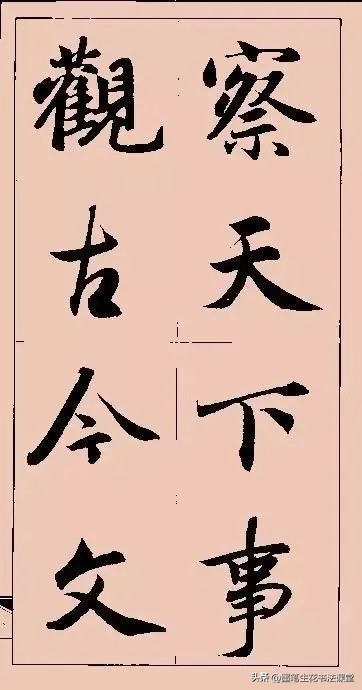 察天下事
觀古今文
头条 @墨笔生花书法课堂